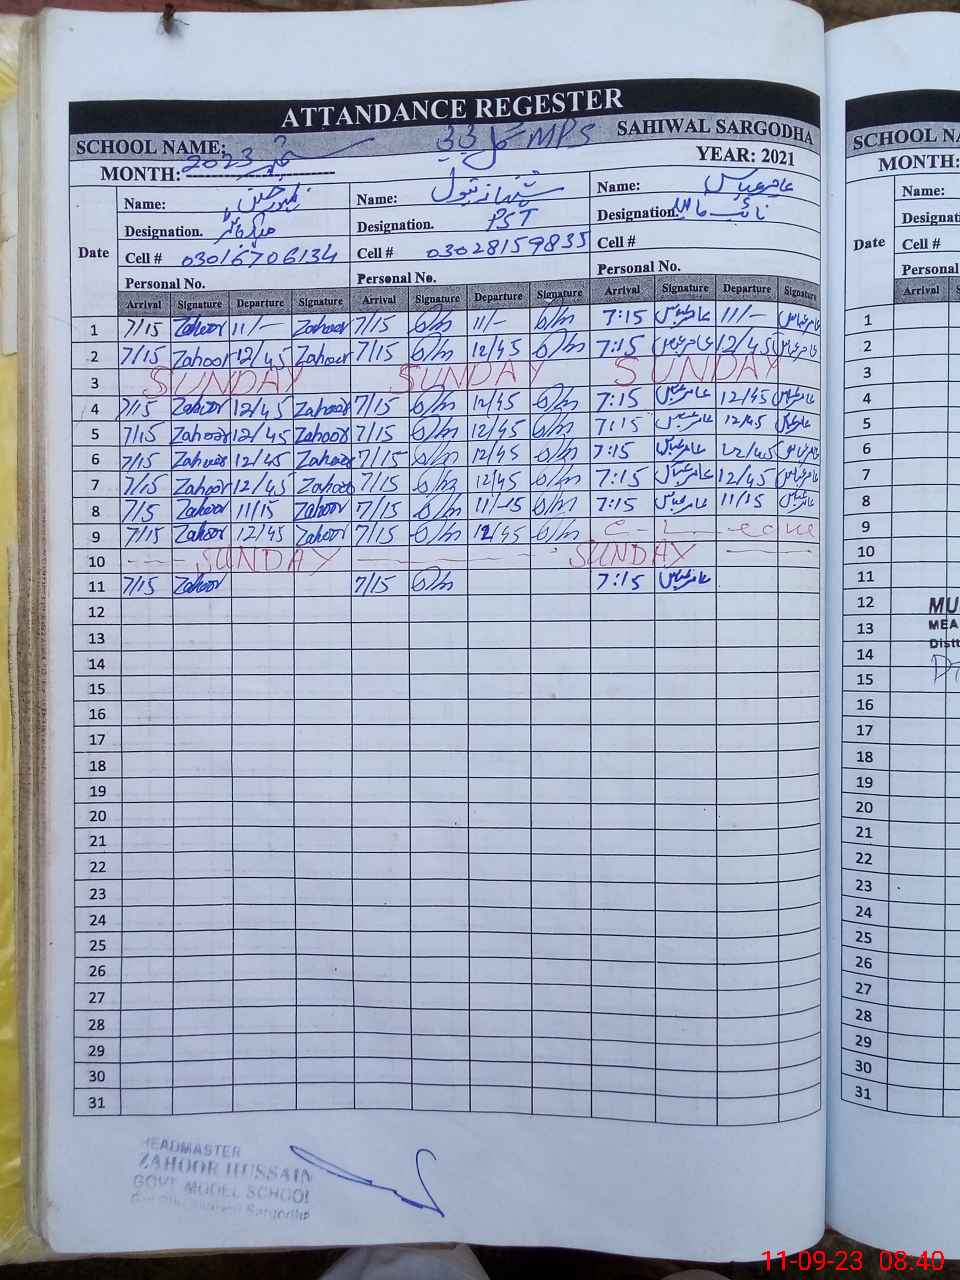 ATTANDANCE REGESTER
SCHOOL NAME: MPS SAHIWAL SARGODHA
MONTH: ستمبر 2023 YEAR: 2021
Name: ظہور حسین Name: شہناز بتول Name: عامر عباس
Designation. Designation. PST Designation. نائب قاصد
Cell # 03016706134 Cell # 03028159835 Cell #
Personal No. Personal No. Personal No.
Date Arrival Signature Departure Signature Arrival Signature Departure Signature Arrival Signature Departure Signature
1 7/15 Zahoor 11/- Zahoor 7/15 11/- 7:15 عامر عباس 11/- عامر عباس
2 7/15 Zahoor 12/45 Zahoor 7/15 12/45 7:15 عامر عباس 12/45 عامر عباس
3 SUNDAY SUNDAY SUNDAY
4 7/15 Zahoor 12/45 Zahoor 7/15 12/45 7:15 عامر عباس 12/45 عامر عباس
5 7/15 Zahoor 12/45 Zahoor 7/15 12/45 7:15 عامر عباس 12/45 عامر عباس
6 7/15 Zahoor 12/45 Zahoor 7/15 12/45 7:15 عامر عباس 12/45 عامر عباس
7 7/15 Zahoor 12/45 Zahoor 7/15 12/45 7:15 عامر عباس 12/45 عامر عباس
8 7/15 Zahoor 11/15 Zahoor 7/15 11/-15 7:15 عامر عباس 11/15 عامر عباس
9 7/15 Zahoor 12/45 Zahoor 7/15 12/45 C-Leave
10 SUNDAY SUNDAY
11 7/15 Zahoor 7/15 7:15 عامر عباس
12
13
14
15
16
17
18
19
20
21
22
23
24
25
26
27
28
29
30
31
HEADMASTER
ZAHOOR HUSSAIN
GOVT MODEL SCHOOL
Sargodha
SCHOOL NA
MONTH:
Name:
Designati
Date Cell #
Personal
Arrival S
1
2
3
4
5
6
7
8
9
10
11
12 MU
13 MEA
14 Distt
15
16
17
18
19
20
21
22
23
24
25
26
27
28
29
30
31
11-09-23 08:40